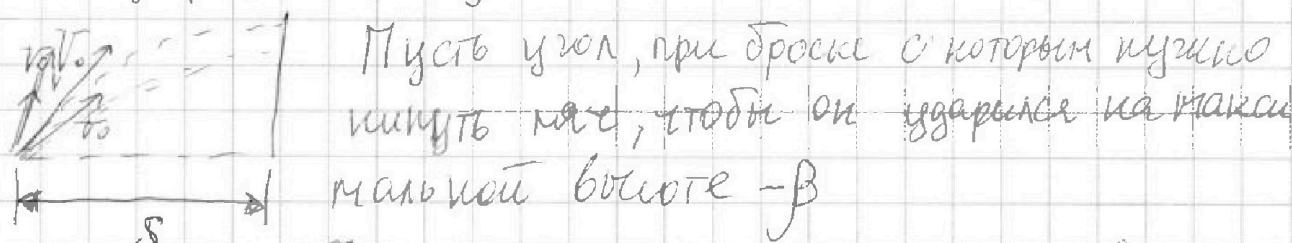 V₀ V₀ Пусть угол, при броске с которым нужно
V₀ кинуть мяч, чтобы он ударился на макси
мальной высоте - β
S